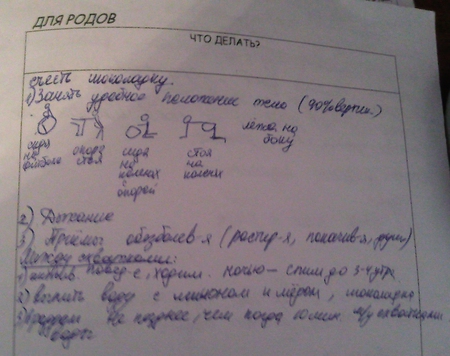 ДЛЯ РОДОВ
ЧТО ДЕЛАТЬ?
съесть шоколадку.
1) Занять удобное положение тела (90% вертик.)
сидя на фитболе
опора стоя
сидя на коленях с опорой
стоя на коленях
лёжа на боку
2) Дыхание
3) Приёмы обезболив-я (растир-я, покачив-я,
Между схватками:
1) актив. повед-е, ходим. ночью - спим до 3-4 утра
2) попить воду с лимоном и мёдом, шоколадка
3) роддом не позднее, чем когда 10 мин м/у схватками